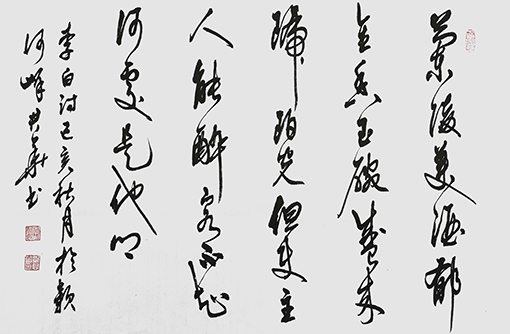 蘭陵美酒郁
金香玉碗盛来
琥珀光但使主
人能醉客不知
何處是他乡
李白诗己亥秋月於颖
河畔华书